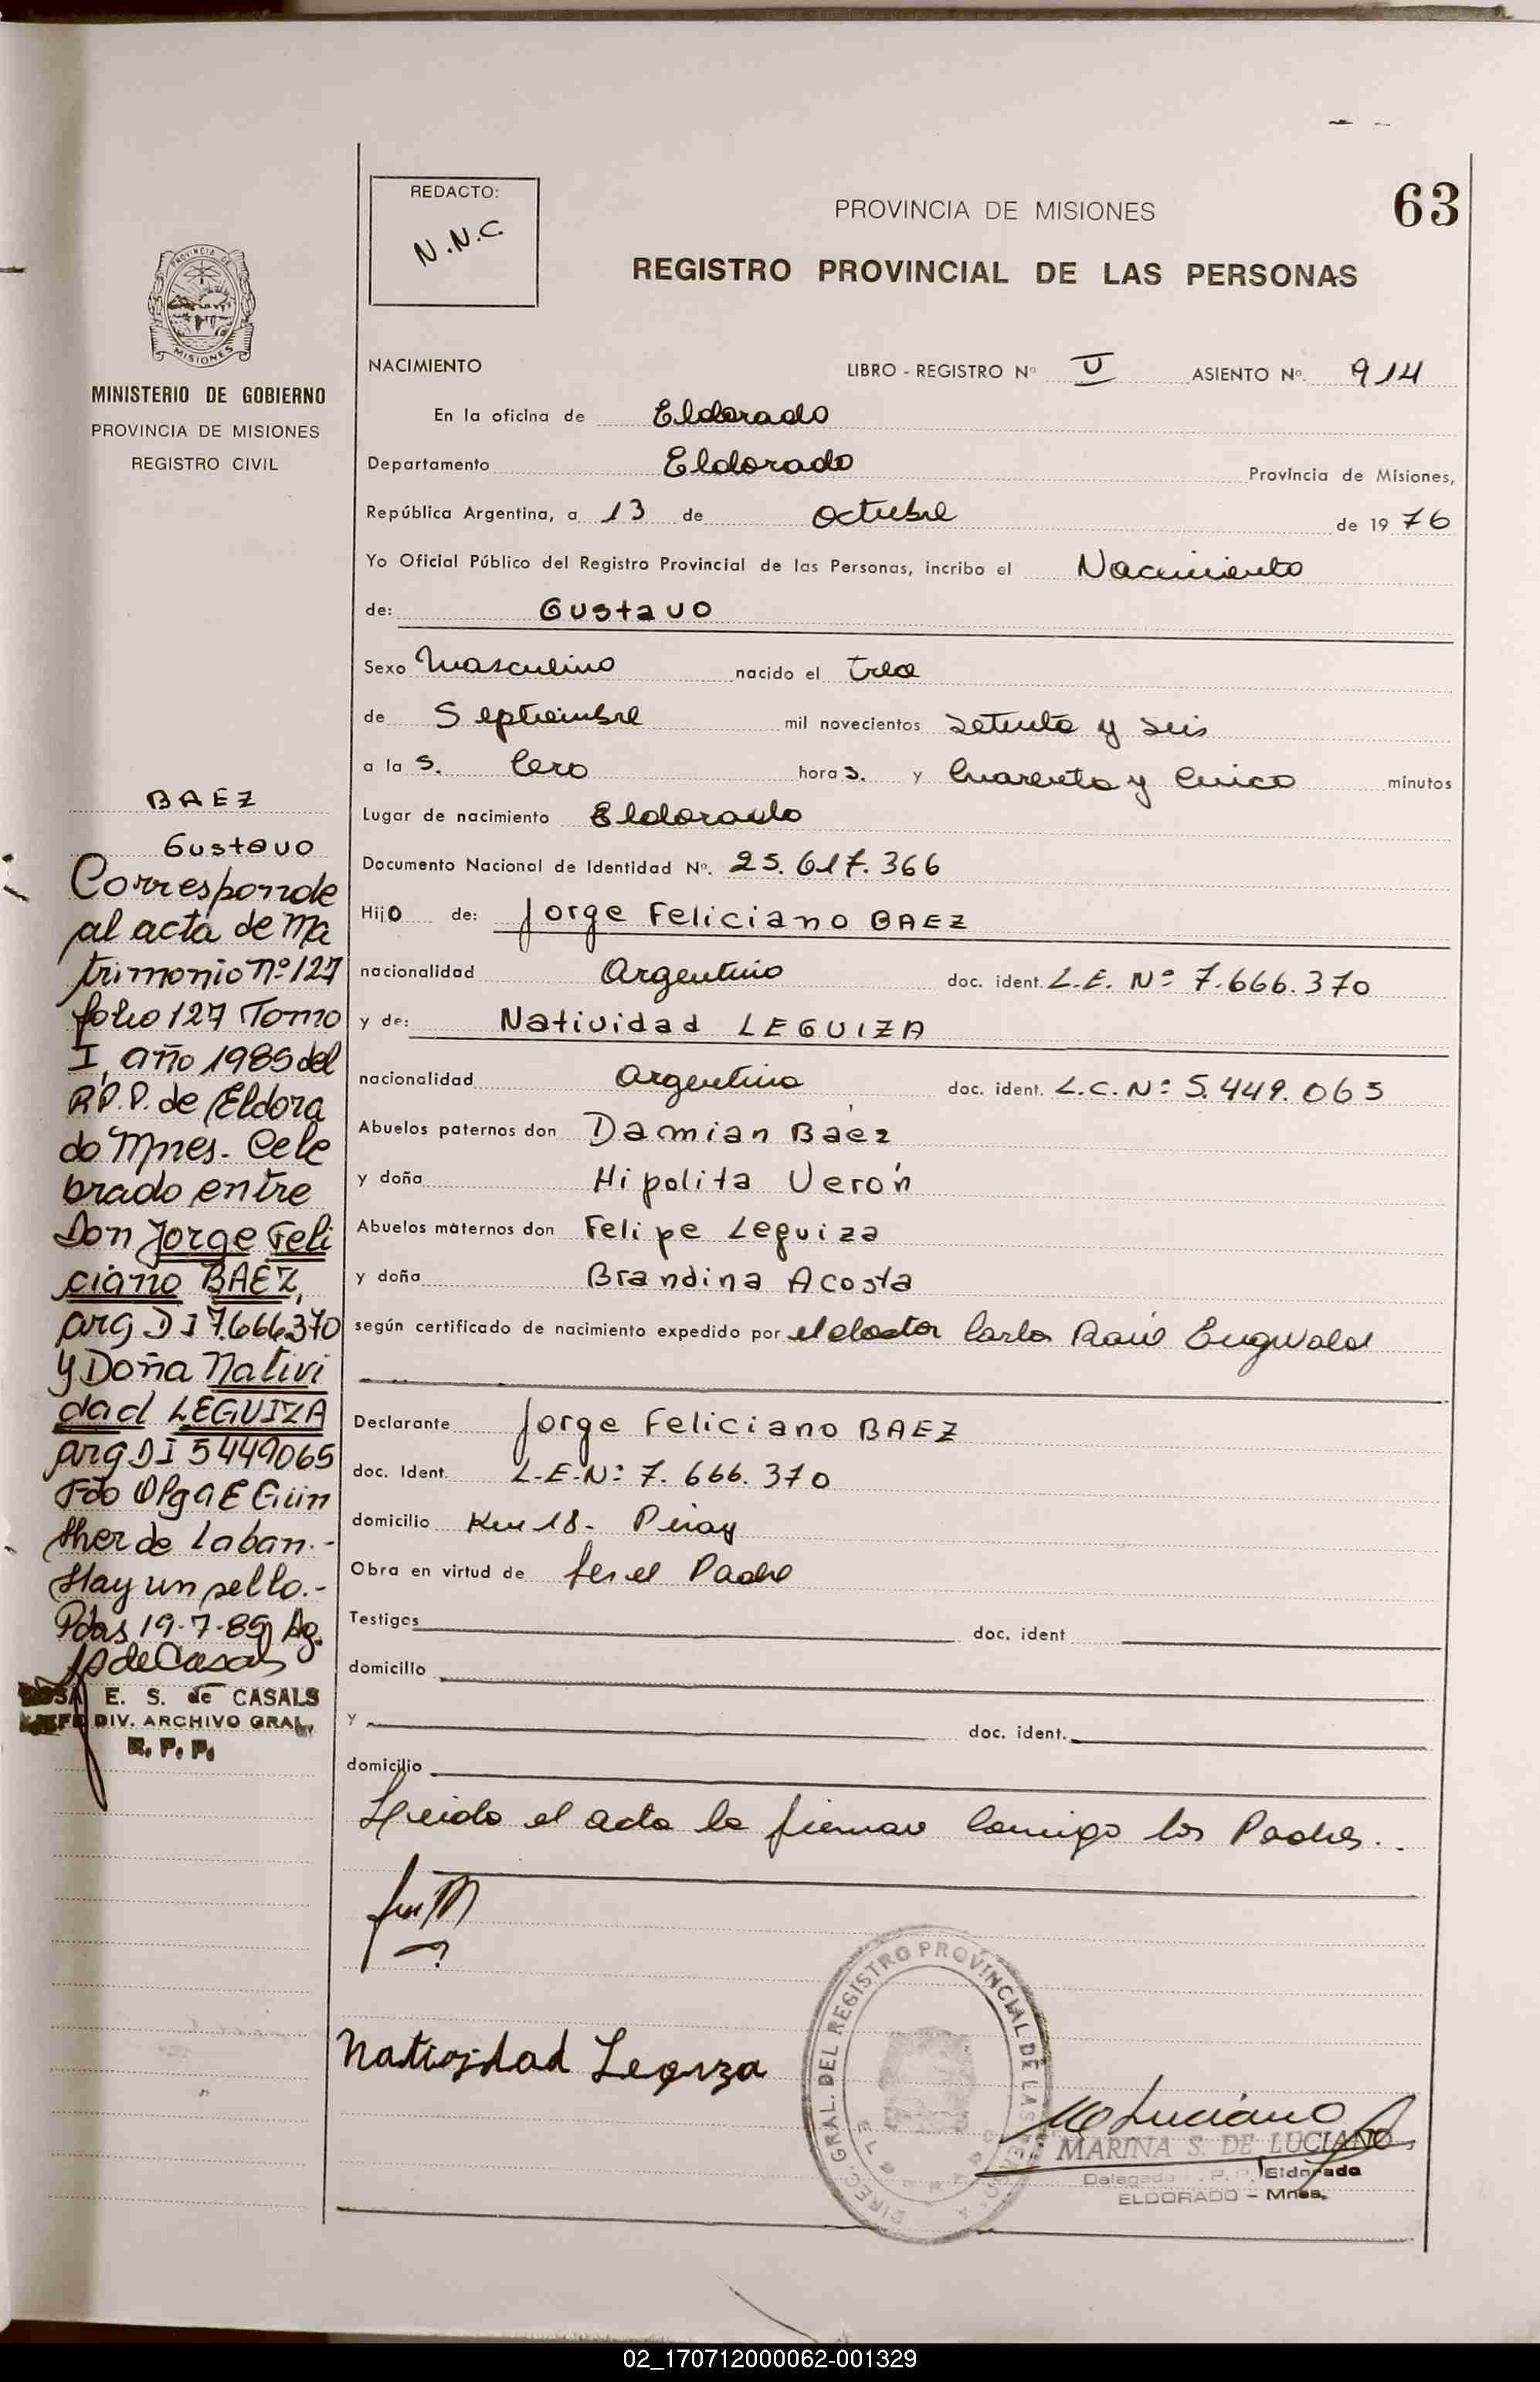 REDACTO:
N.N.C.
PROVINCIA DE MISIONES
63
REGISTRO PROVINCIAL DE LAS PERSONAS
PROVINCIA DE
MISIONES
MINISTERIO DE GOBIERNO
PROVINCIA DE MISIONES
REGISTRO CIVIL
NACIMIENTO LIBRO - REGISTRO Nº ASIENTO Nº. 914
En la oficina de Eldorado
Departamento Eldorado Provincia de Misiones,
República Argentina, a 13 de octubre de 19 76
Yo Oficial Público del Registro Provincial de las Personas, incribo el Nacimiento
de: Gustavo
Sexo Masculino nacido el tres
de Septiembre mil novecientos setenta y seis
a la s. Cero hora s. y Cuarenta y Cinco minutos
Lugar de nacimiento Eldorado
Documento Nacional de Identidad Nº. 25.617.366
Hijo de: Jorge Feliciano BAEZ
nacionalidad Argentino doc. ident. L.E. Nº 7.666.370
y de: Natividad LEGUIZA
nacionalidad Argentina doc. ident. L.C. Nº 5.449.065
Abuelos paternos don Damian Báez
y doña Hipolita Verón
Abuelos maternos don Felipe Leguiza
y doña Brandina Acosta
según certificado de nacimiento expedido por el doctor Carlos Raúl
Declarante Jorge Feliciano BAEZ
doc. Ident. L-E-Nº 7.666.370
domicilio Km 18- Piray
Obra en virtud de ser el Padre
Testigos doc. ident
domicilio
y doc. ident.
domicilio
Leida el acta la firman Conmigo los Padres.
BAEZ
Gustavo
Corresponde
al acta de Ma
trimonio nº 127
folio 127 Tomo
I, año 1985 del
R.P.P. de Eldora
do Mnes. Cele
brado entre
Don Jorge Feli
ciano BAEZ,
arg DI 7.666.370
y Doña Nativi
dad LEGUIZA
arg DI 5449065
Fdo Olga E Gün
ther de Laban.-
Hay un sello.-
Pdas 19-7-89 Ag.
E. S. de CASALS
JEFE DIV. ARCHIVO GRAL.
R. P. P.
Natividad Legiza
DIREC. GRAL. DEL REGISTRO PROVINCIAL DE LAS
M Luciano
MARINA S. DE LUCIANO
Delegada R. P. P. Eldorado
ELDORADO - Mnes.
02_170712000062-001329